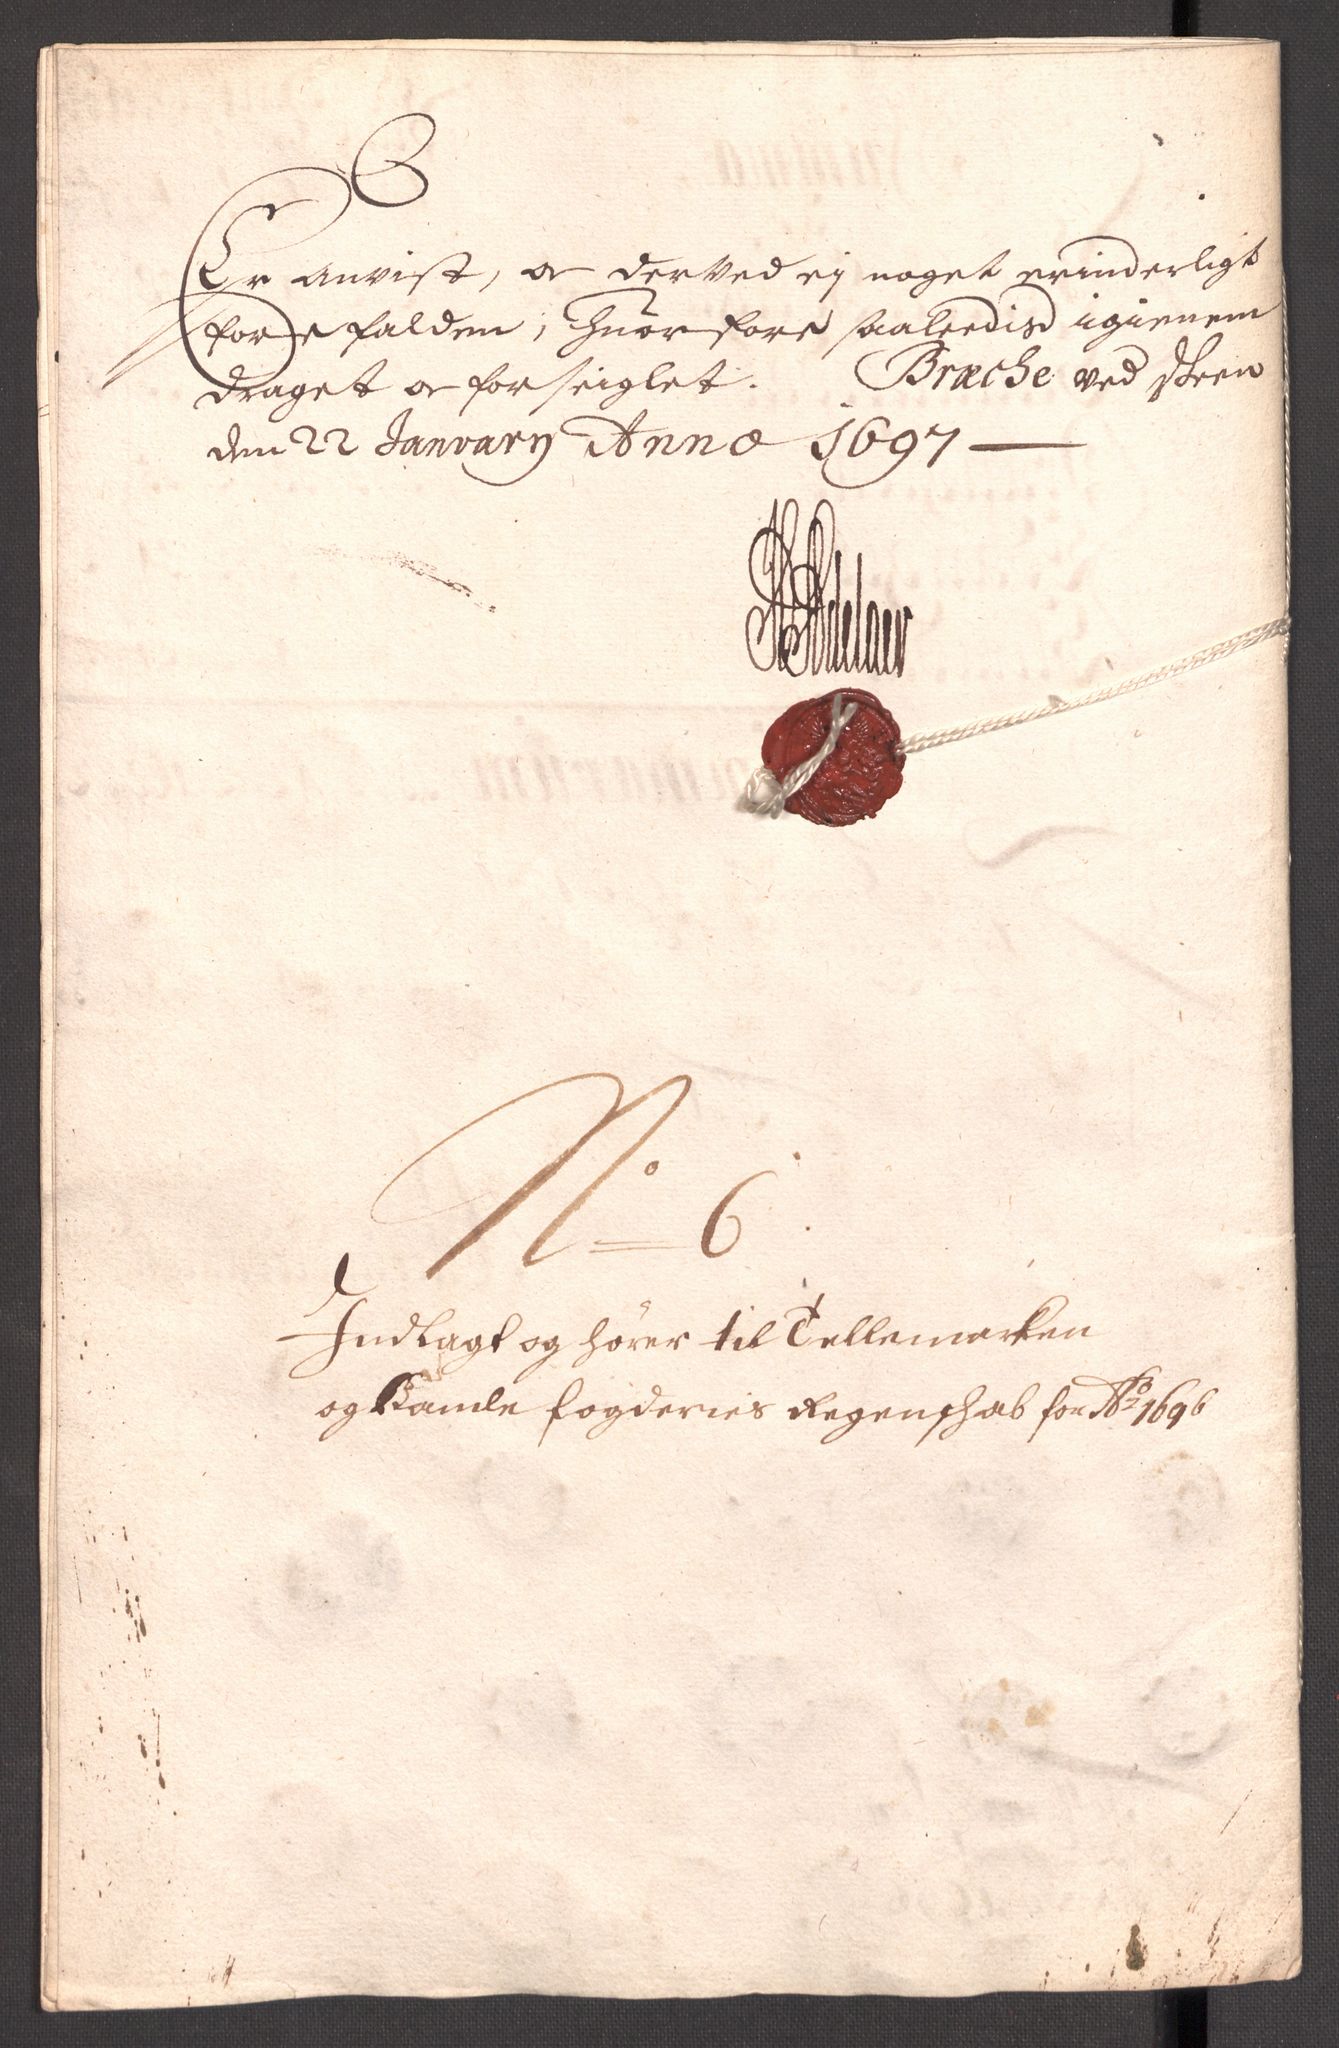 Er anvist, og derved ej noget erinderligt
forefalden, huorfore saaleedis igienem
draget og forseiglet. Bratche ved Skeen
den 22 January Anno 1697
H Adelaer
No 6
Indlagt og hører til Tellemarken
og Bamle fogderies Regenschab for Ao 1696